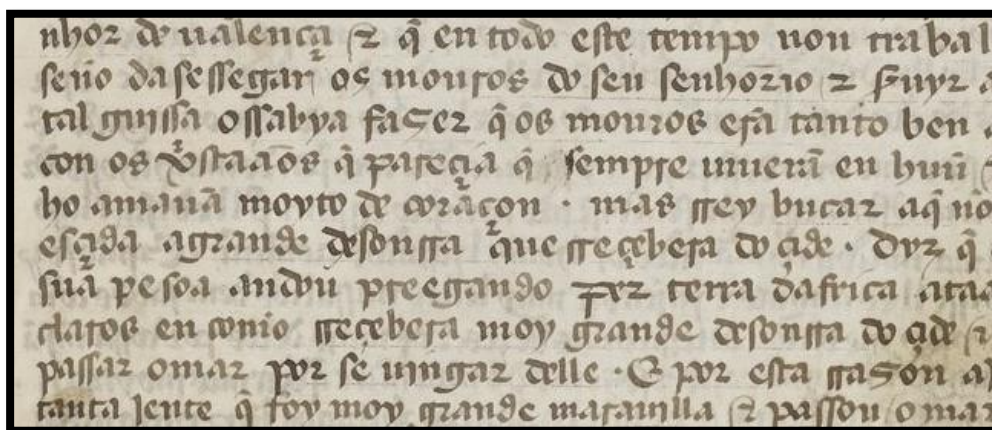 nhor de ualença ⁊ q̃ en todo este tempo non trabal
seño dasessegar os mouros do seu senhorio ⁊ s̃uyr a
tal guissa ossabya fazer q̃ os mouros erã tanto ben
con os xp̃staãos q̃ pareçia q̃ sempre uiuerã en huũ
ho amauã moyto de coraçon · mas rrey bucar aq̃ nõ
esçida agrande desonrra que rreçebera do çide · Diz q̃
sua pesoa andou preegando per terra dafrica ataa
claros en conio rreçebera moy grande desonrra do çide ⁊
passar omar por se uingar delle · E por esta rrazon al
tanta iente q̃ foy moy grande marauilla ⁊ passou omar